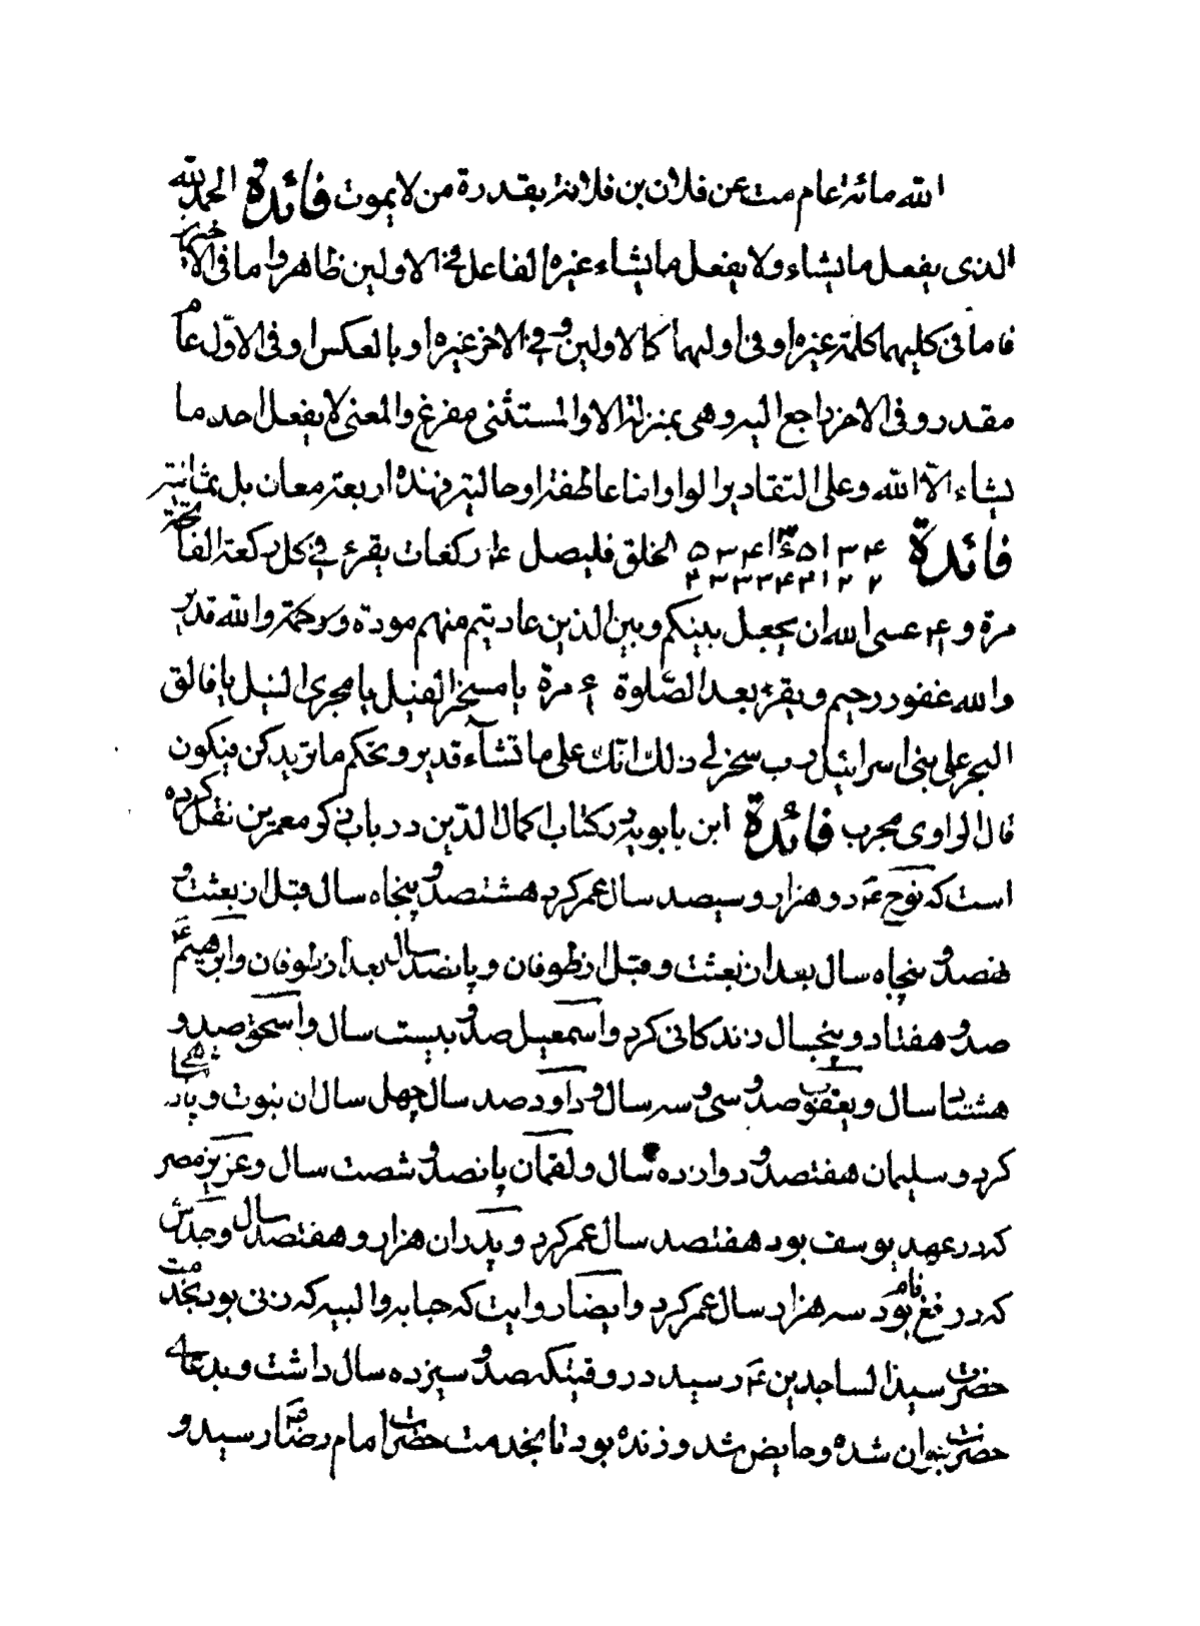 الله مائة عام مت عن فلان بن فلانة بقدرة من لا يموت فائدة الحمد لله
الذى يفعل ما يشاء ولا يفعل ما يشاء غيره الفاعل فى الاولين ظاهر وما فى الاخيرين
فاما فى كليهما كلمة غيره او فى اوليهما كالاولين وفى الاخر غيره او بالعكس او فى الاول عام
مقدر وفى الاخر راجع اليه وهى بمنزلة الا والمستثنى مفرغ والمعنى لا يفعل احد ما
يشاء الا الله وعلى التقادير الواو اما عاطفة او حالية فهذه اربعة معان بل ثمانية
فائدة الخلق فليصل ۴ ركعات يقرء فى كل ركعة الفاتحة
مرة و عسى الله ان يجعل بينكم وبين الذين عاديتم منهم مودة ورحمة والله قدير
والله غفور رحيم ويقرء بعد الصلوة مرة يا مسخر الفيل يا مجرى النيل يا فالق
البحر على بنى اسرائيل رب سخر لى ذلك انك على ما تشاء قدير وتحكم ما تريد كن فيكون
قال الراوى مجرب فائدة ابن بابويه در كتاب اكمال الدين در باب ذكر معمرين نقل كرده
است كه نوح ع دو هزار و سيصد سال عمر كرد هشتصد و پنجاه سال قبل از بعثت و
نهصد و پنجاه سال بعد از بعثت و قبل از طوفان و پانصد سال بعد از طوفان و ابرهيم ع
صد و هفتاد و پنجسال زندكانى كرد و اسمعيل صد و بيست سال و اسحق صد و
هشتاد سال و يعقوب صد و سى و سه سال و داود صد سال چهل سال ان نبوت و پادشاهى
كرد و سليمان هفتصد و دوازده سال و لقمان پانصد و شصت سال و عزيز مصر
كه در عهد يوسف بود هفتصد سال عمر كرد و پدر ان هزار و هفتصد سال و جدش
كه در فع نام بود سه هزار سال عمر كرد و ايضا روايت كه حبابه والبيه كه زنى بود بخدمت
حضرت سيد الساجدين ع رسيد در وقتيكه صد و سيزده سال داشت و بدعاى
حضرت جوان شده و حايض شد و زنده بود تا بخدمت حضرت امام رضا رسيد و